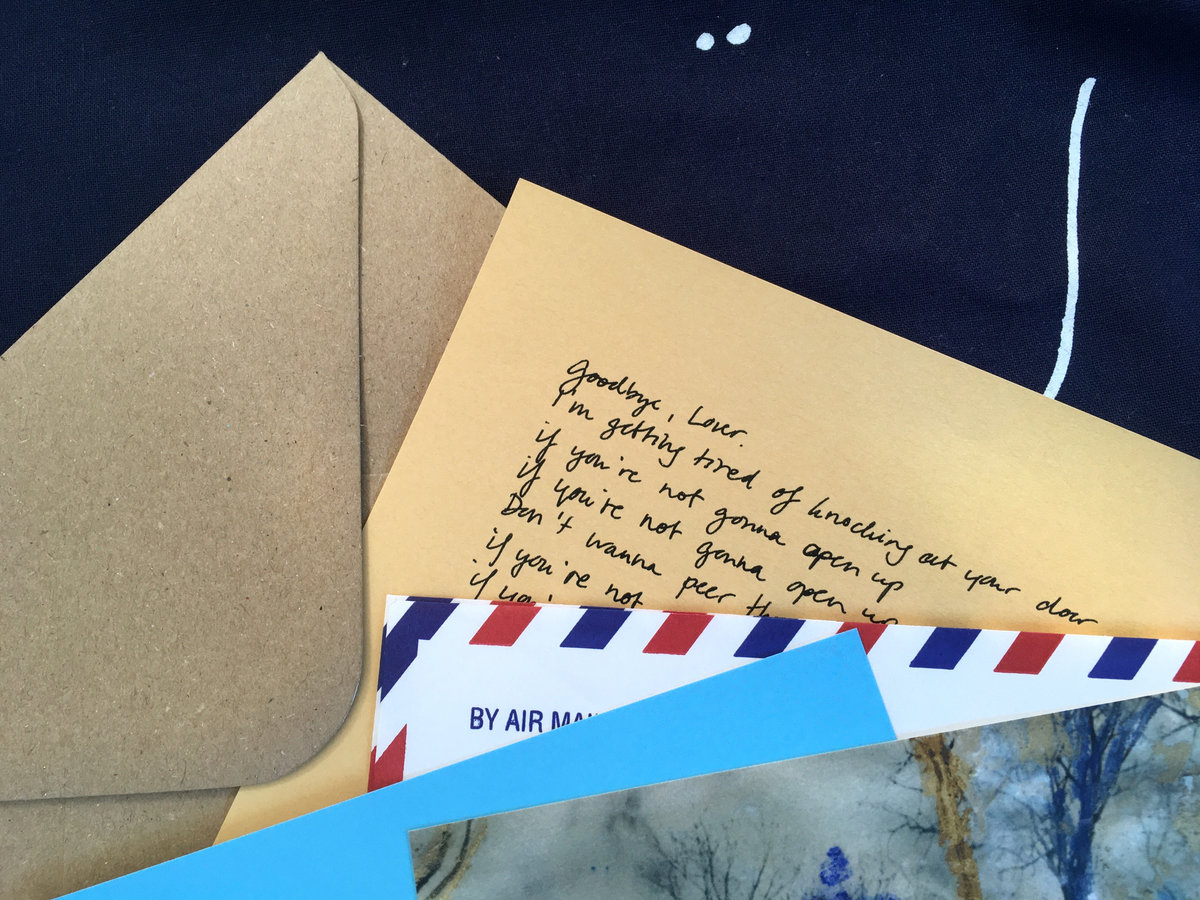 Goodbye, Lover.
I'm getting tired of knocking at your door
if you're not gonna open up
if you're not gonna open up
Don't wanna peer
if you're not
if
BY AIR